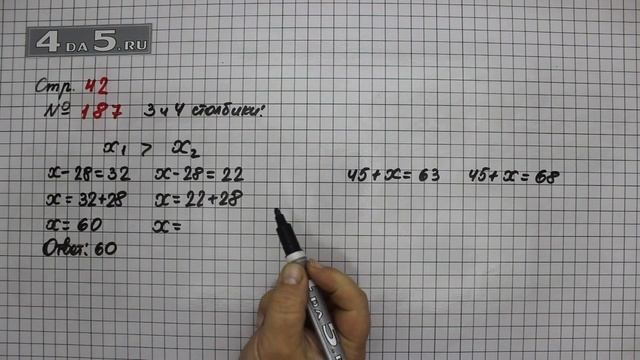 4 DA 5.RU
Стр. 42
№ 187 3 и 4 столбики:
x₁ > x₂
x-28=32 x-28=22 45+x=63 45+x=68
x=32+28 x=22+28
x=60 x=
Ответ: 60
4 DA 5.